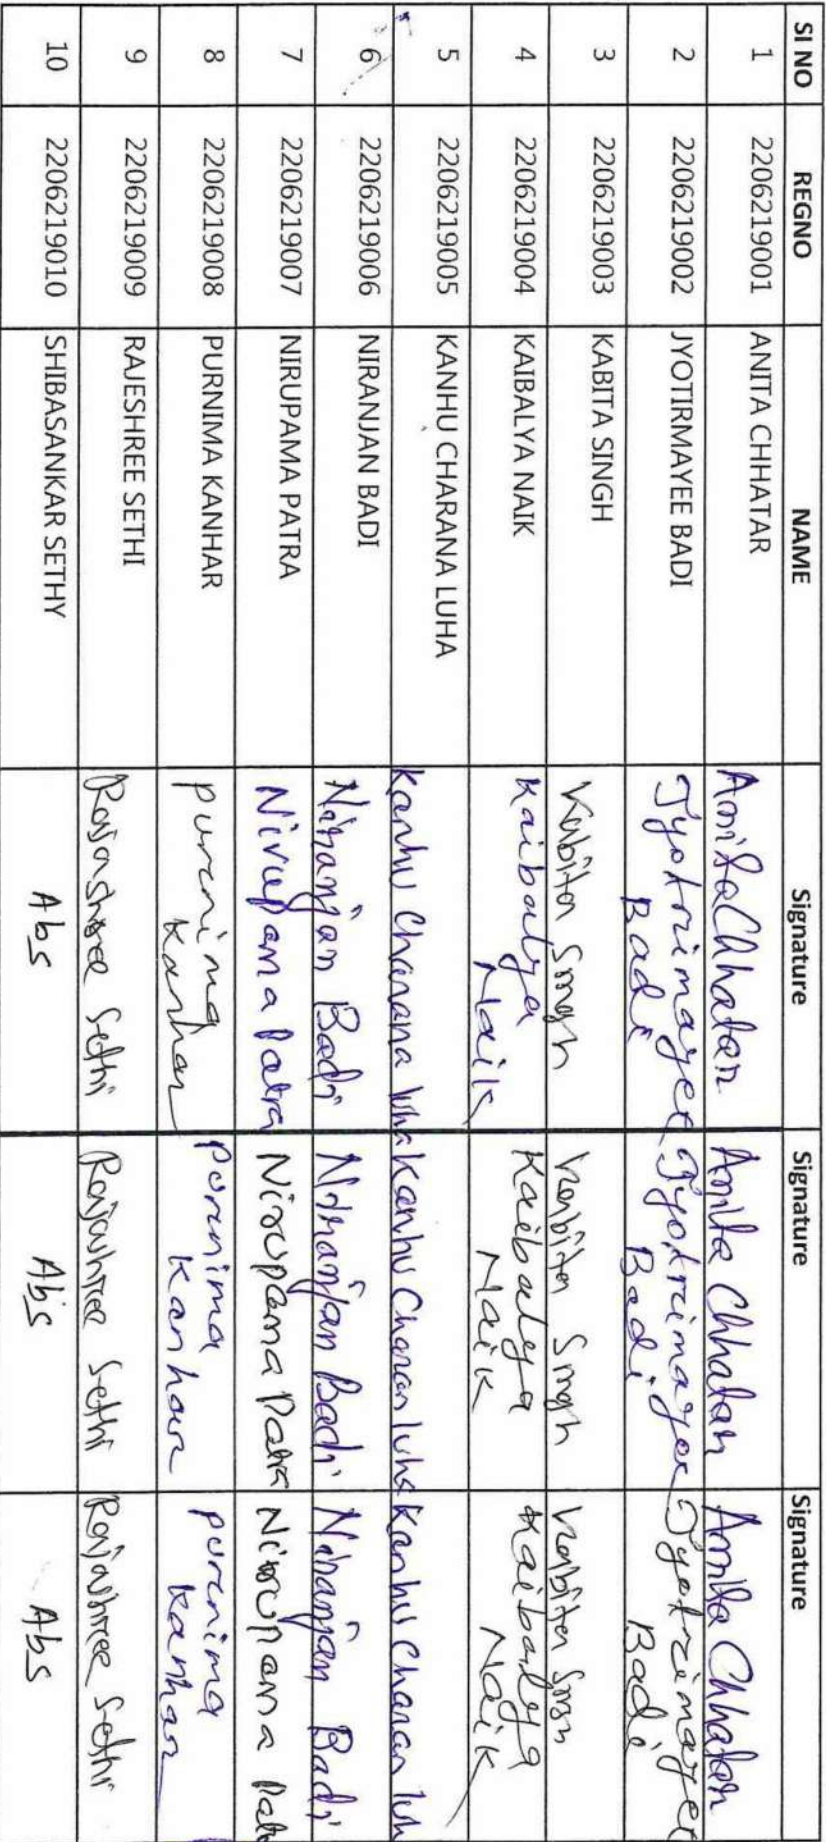 SI NO REGNO NAME Signature Signature Signature
1 2206219001 ANITA CHHATAR Anita Chhatar Anita Chhatar Anita Chhatar
2 2206219002 JYOTIRMAYEE BADI Jyotrimayee Jyotrimayee Jyotrimayee
Badi Badi Badi
3 2206219003 KABITA SINGH Kabita Singh Kabita Singh Kabita
4 2206219004 KAIBALYA NAIK Kaibalya Kaibalya Kaibalya
Naik Naik Naik
5 2206219005 KANHU CHARANA LUHA Kanhu Charana luha Kanhu Charan luha Kanhu Charan luh
6 2206219006 NIRANJAN BADI Niranjan Badi Niranjan Badi Niranjan Badi
7 2206219007 NIRUPAMA PATRA Nirupama Patra Nirupama Patra Nirupama
8 2206219008 PURNIMA KANHAR purnima purnima purnima
Kanhar Kanhar Kanhar
9 2206219009 RAJESHREE SETHI Rajashree Sethi Rajashree Sethi Rajashree Sethi
10 2206219010 SHIBASANKAR SETHY Abs Abs Abs